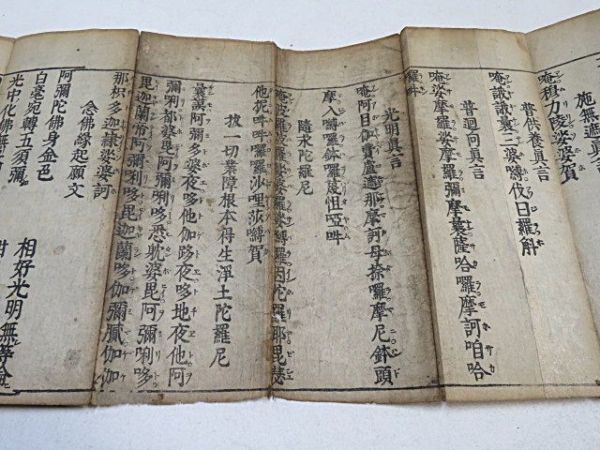 施無遮真言
唵穆力陵娑婆賀
普供養真言
唵誐誐曩三婆嚩伐日羅斛
普廻向真言
唵娑摩羅娑摩羅彌摩曩薩哈羅摩訶咱哈
羅吽
光明真言
唵阿目伽賣盧遮那摩訶母捺囉摩尼鉢頭
摩入嚩攞鉢囉韈哆啞吽
隨求陀羅尼
他抳吽吽囉囉沙哩莎嚩賀
拔一切業障根本得生淨土陀羅尼
曩謨阿彌多婆夜哆他伽哆夜哆地夜他阿
彌唎都婆毘阿彌唎哆悉耽婆毘阿彌唎哆
毘迦蘭帝阿彌唎哆毘迦蘭哆伽彌膩伽伽
那枳多迦隸娑婆訶
念佛緣起願文
阿彌陀佛身金色
相好光明無等倫
白毫宛轉五須彌
光中化佛